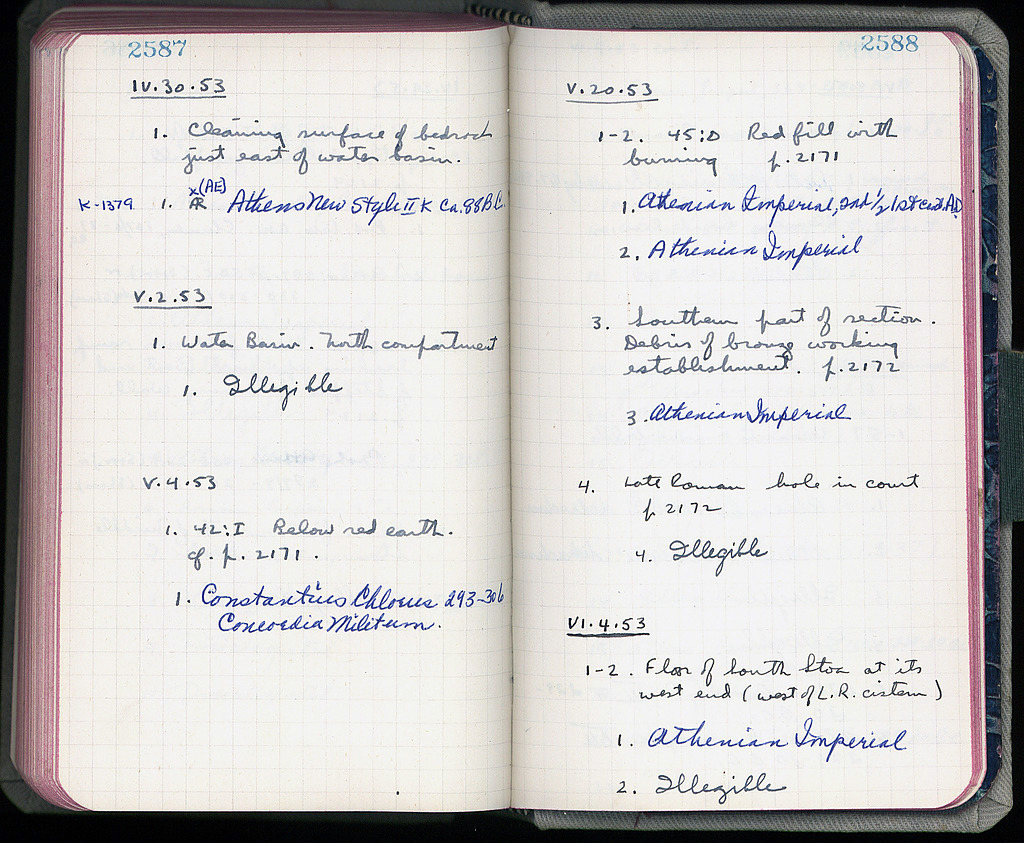 2587
IV.30.53
1. Cleaning surface of bedrock
just east of water basin.
x(AE)
K-1379 1. AR Athens New Style II K Ca. 88 B.C.
V.2.53
1. Water Basin. North compartment
1. Illegible
V.4.53
1. 42:I Below red earth.
cf. p. 2171.
1. Constantius Chlorus 293-306
Concordia Militum.
2588
V.20.53
1-2. 45:D Red fill with
burning p. 2171
1. Athenian Imperial, 2nd ½ 1st cent. A.D.
2. Athenian Imperial
3. Southern part of section.
Debris of bronze working
establishment. p. 2172
3. Athenian Imperial
4. Late Roman hole in court
p 2172
4. Illegible
VI.4.53
1-2. Floor of South Stoa at its
west end (west of L.R. cistern)
1. Athenian Imperial
2. Illegible